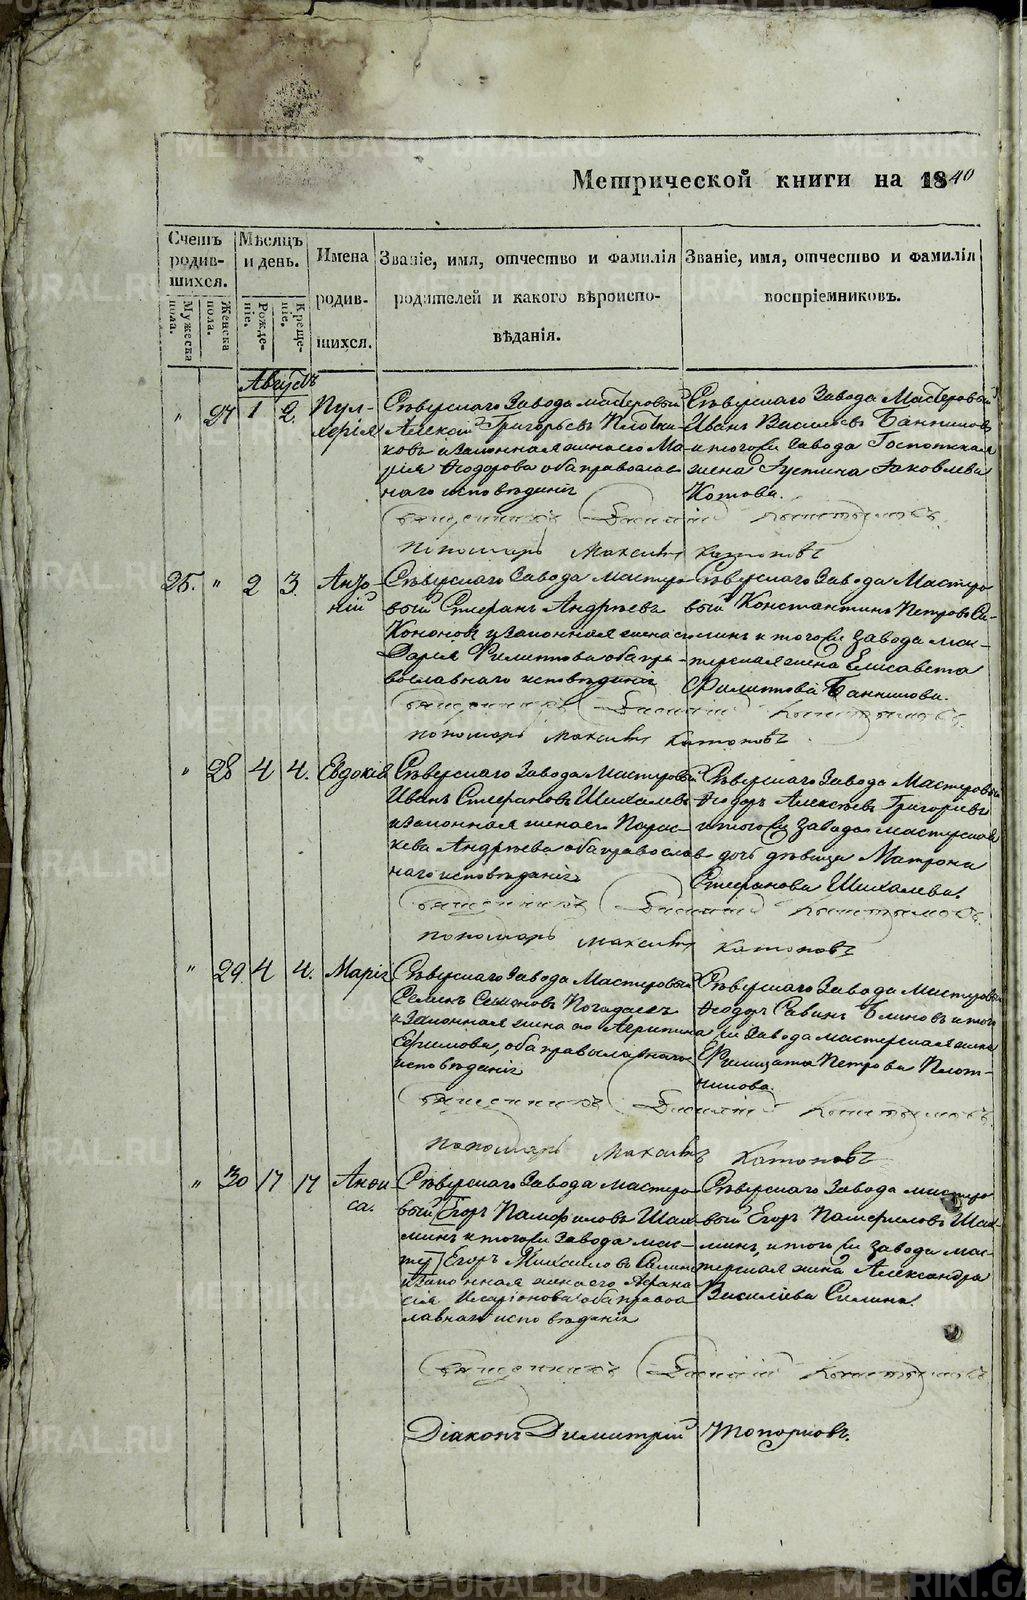 Метрической книги на 1840
Счетъ родившихся.
Мужеска пола.
Женска пола.
Мѣсяцъ и день.
Рожденіе.
Крещеніе.
Имена родившихся.
Званіе, имя, отчество и фамилія родителей и какого вѣроисповѣданія.
Званіе, имя, отчество и фамилія воспріемниковъ.
Августъ
" 27 1 2. Пул-
херія
Сѣверскаго Завода мастеровый
Алексій Григорьевъ Плотни-
ковъ и законная жена его Ма-
рія Ѳеодорова оба православ
наго исповѣданія
Сѣверскаго Завода Мастеровый
Иванъ Васильевъ Банниковъ
и того же завода
жена Іустина Яковлева
Котова.
Священникъ Василій
пономарь Максимъ Катоновъ
25. " 2 3. Анѳо-
ній
Сѣверскаго Завода мастеро-
вый Стефанъ Андрѣевъ
Кононовъ и законная жена его
Дарья Филиппова оба пра-
вославнаго исповѣданія
Сѣверскаго Завода Мастеро
вый Константинъ Петровъ Си-
минъ и того же завода мас-
терская жена Елисавета
Филиппова Банникова.
Священникъ Василій
пономарь Максимъ Катоновъ
" 28 4 4. Евдокія
Сѣверскаго Завода Мастеровый
Иванъ Стефановъ Шихалевъ
и законная жена его Парас-
кева Андрѣева оба православ
наго исповѣданія
Сѣверскаго Завода Мастеровый
Ѳеодоръ Алексѣевъ Григорьевъ
и того же завода мастерская
дочь дѣвица Матрона
Стефанова Шихалева.
Священникъ Василій
пономарь Максимъ Катоновъ
" 29. 4 4. Марія
Сѣверскаго Завода Мастеровый
Семенъ Симоновъ Погадаевъ
и законная жена его Агрипина
Ефимова, оба православнаго
исповѣданія
Сѣверскаго Завода Мастеровый
Ѳеодоръ Савинъ Блиновъ и того
же Завода мастерская жена
Филицата Петрова Плот-
никова.
Священникъ Василій
пономарь Максимъ Катоновъ
" 30 17 17 Анфи
са.
Сѣверскаго Завода мастеро-
вый Егоръ Памфиловъ Шах-
минъ и того же Завода мас-
тер Егоръ Михайловъ Силинъ
и законная жена его Афана
сія Иларіонова оба правос
лавнаго исповѣданія
Сѣверскаго Завода мастеро
вый Егоръ Памфиловъ Шах-
минъ, и того же завода мас-
терская жена Александра
Василіева Силина.
Священникъ Василій
Діаконъ Димитрій Топорковъ.
METRIKI.GASU-URAL.RU